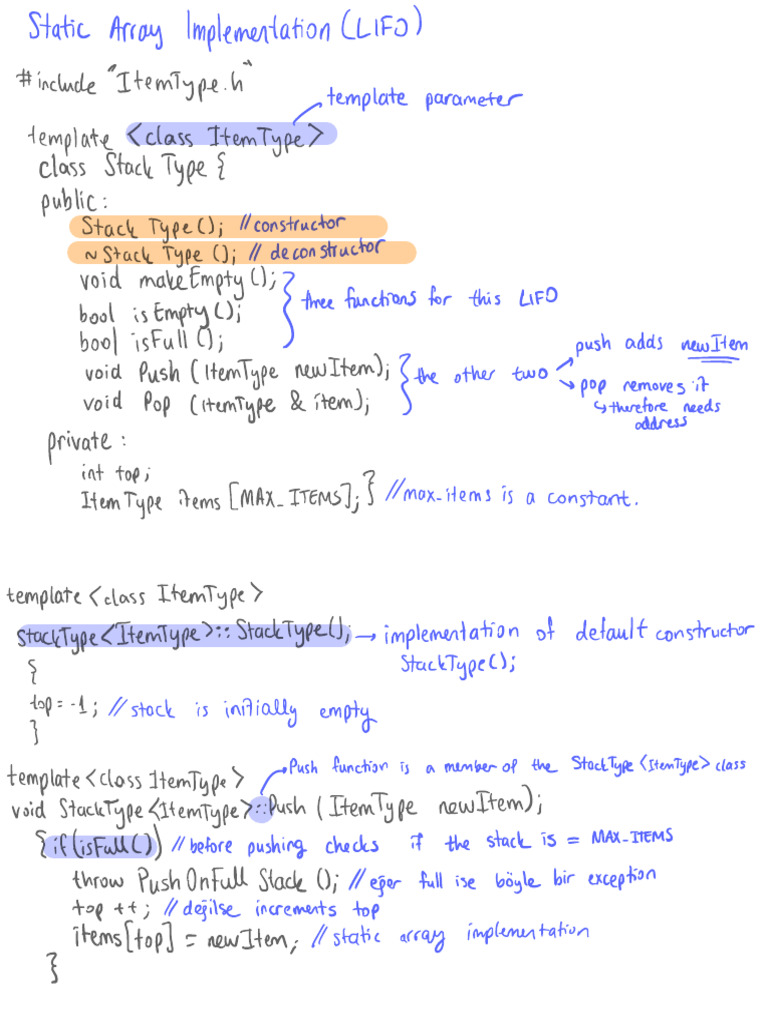 Static Array Implementation (LIFO)
#include "ItemType.h"
template parameter
template <class ItemType>
class StackType {
public:
StackType(); // constructor
~StackType(); // deconstructor
void makeEmpty();
bool isEmpty();
three functions for this LIFO
bool isFull();
void Push (ItemType newItem);
void Pop (ItemType & item);
the other two
push adds newItem
pop removes it
therefore needs
address
private:
int top;
ItemType items [MAX_ITEMS];} //max_items is a constant.
template <class ItemType>
StackType<ItemType>::StackType(); → implementation of default constructor
StackType();
{
top = -1; // stack is initially empty
}
Push function is a member of the StackType<ItemType> class
template <class ItemType>
void StackType<ItemType>::Push (ItemType newItem);
{ if (isFull()) // before pushing checks if the stack is = MAX_ITEMS
throw PushOnFullStack (); // eğer full ise böyle bir exception
top ++; // değilse increments top
items[top] = newItem; // static array implementation
}